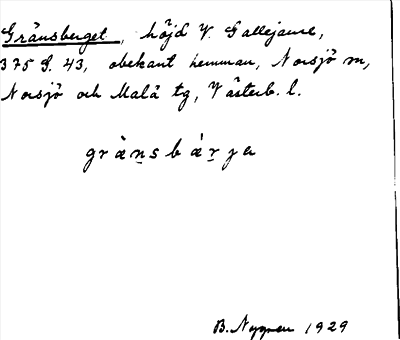 Gränsberget, höjd V. Gallejaure,
375 S. 43, obekant hemman, Norsjö sn,
Norsjö och Malå tg, Västerb. l.
gränsbärja
B. Nygren 1929